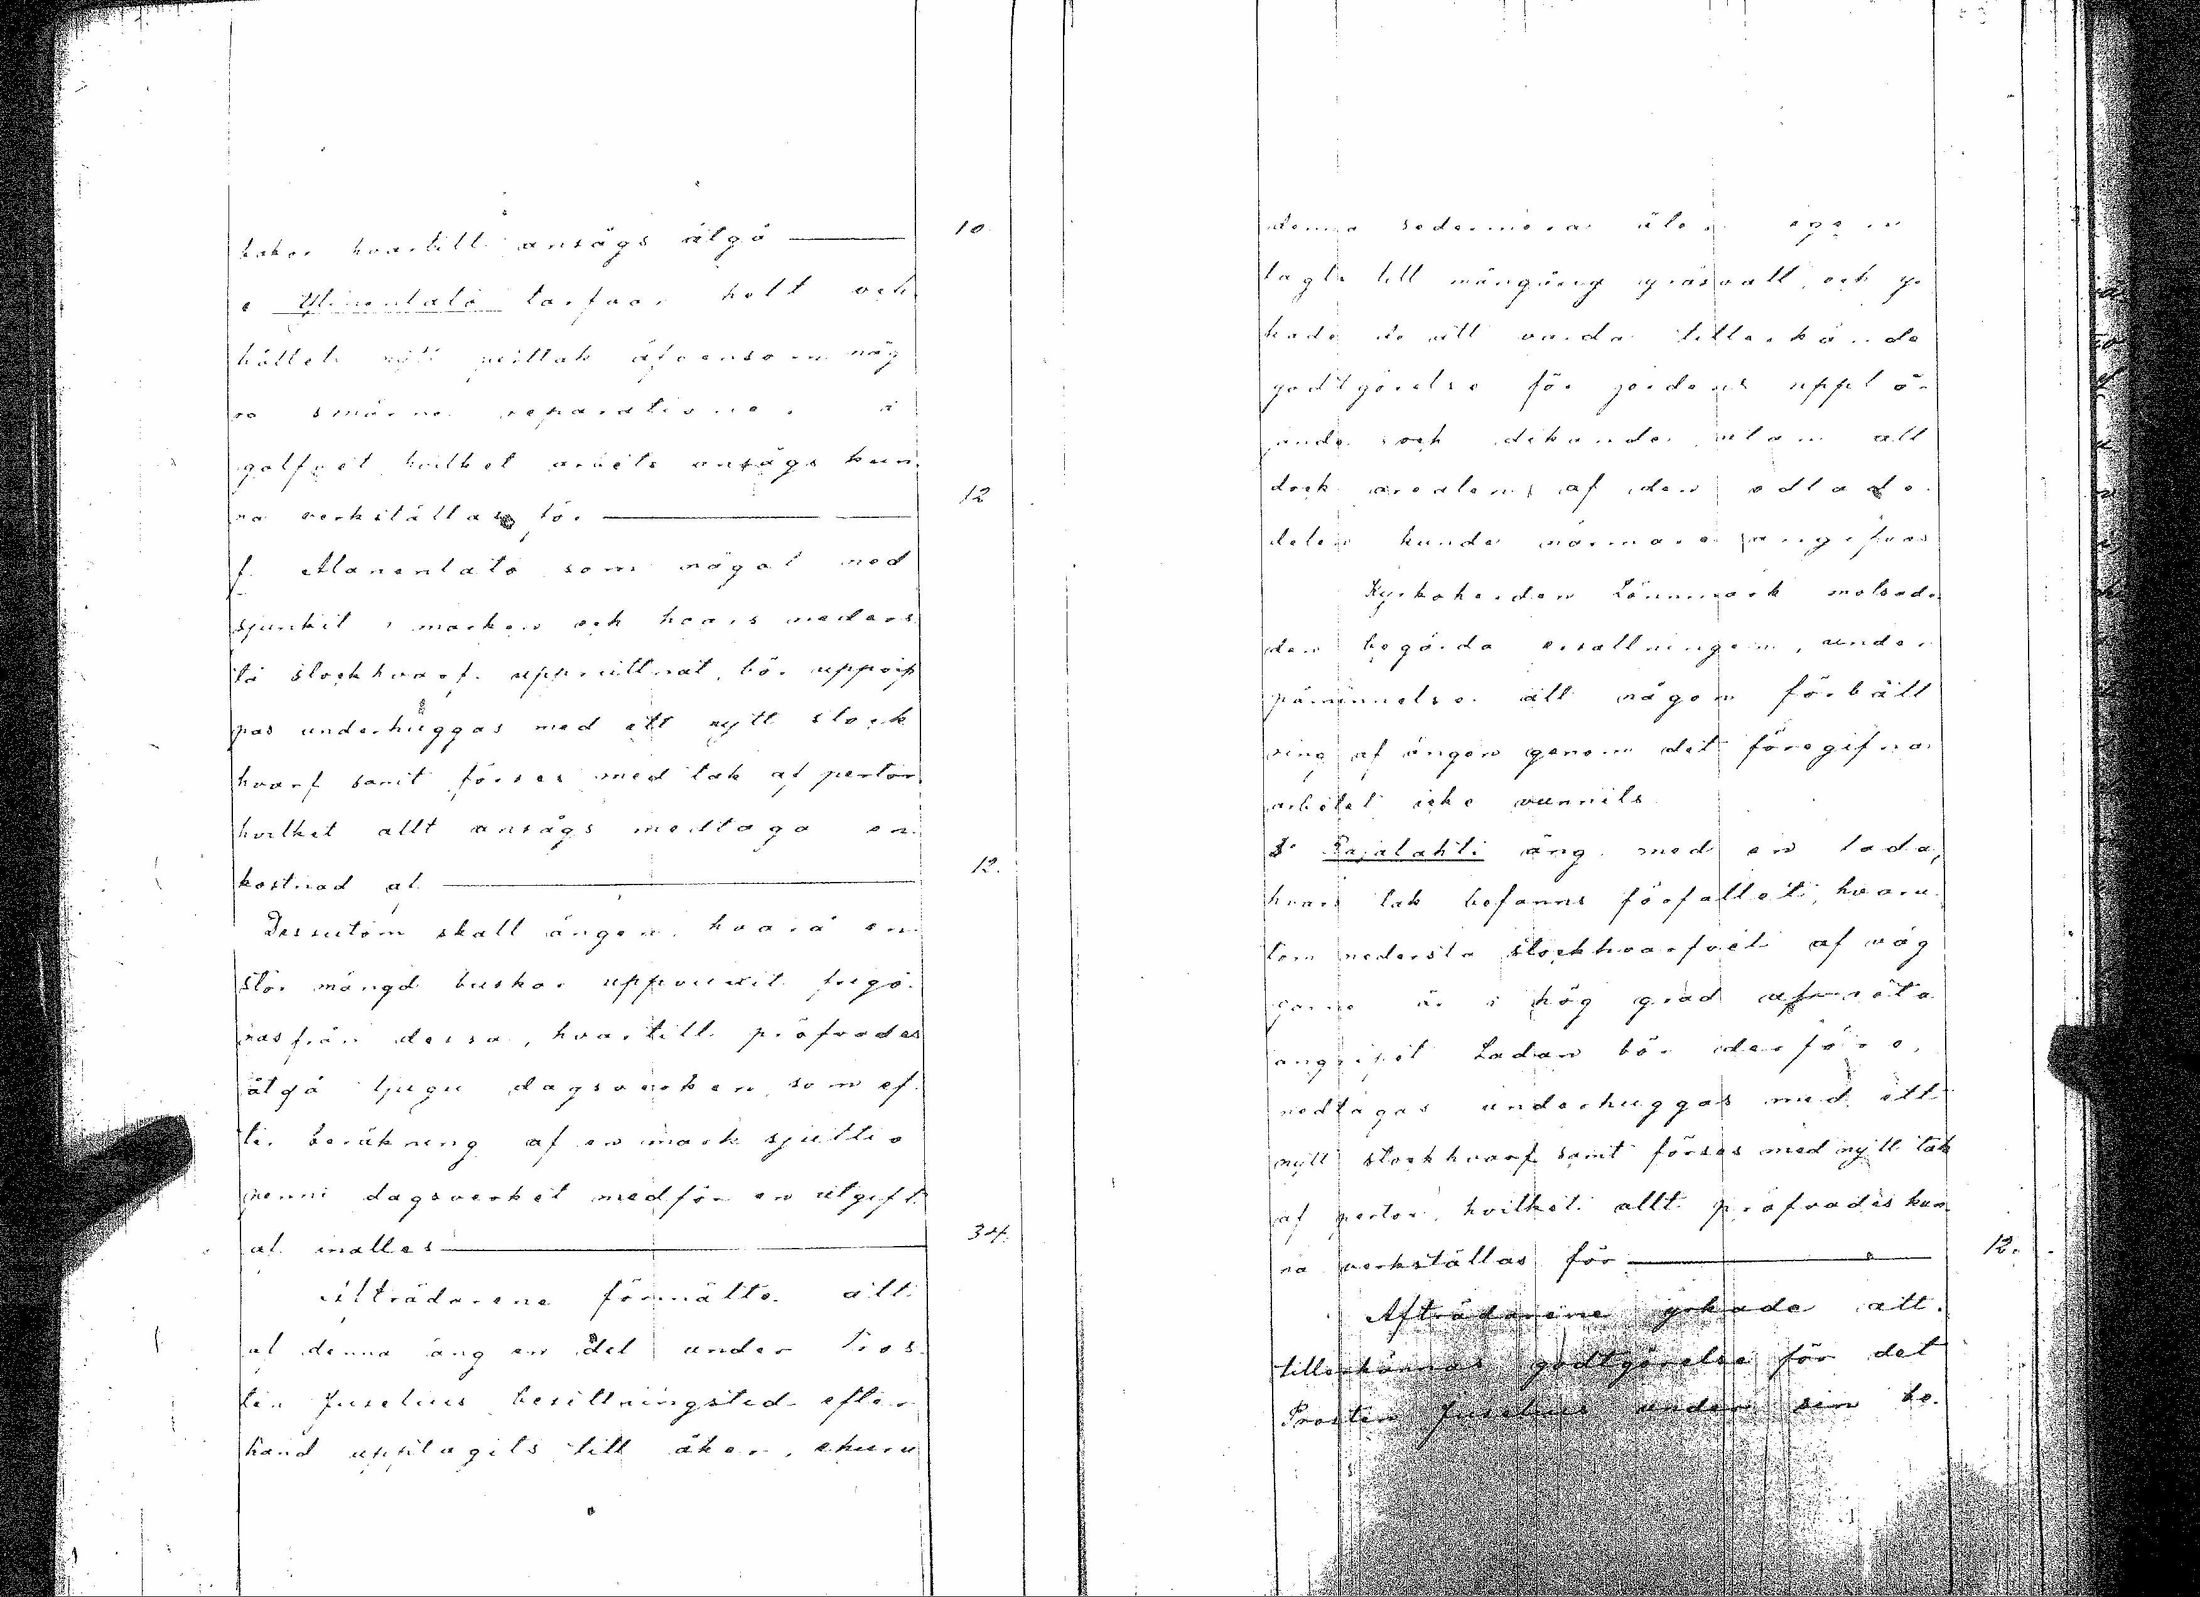 kakor hvartill ansågs åtgå — 10
e Ylinenlato tarfvar helt och
hållet nytt perttak äfvensom någ
ra smärre reparationer i
golfvet hvilket arbete ansågs kun
na verkställas för — 12
f. Alanenlato som något ned
sjunkit i marken och hvars neders
ta stockhvarf uppruttnat, bör uppvip
pas underhuggas med ett nytt stock
hvarf samt förses med tak af pertor
hvilket allt ansågs medtaga en
kostnad af — 12.
Dessutom skall ängen, hvarå en
stor mängd buskar uppvuxit frigö
ras från dessa, hvartill pröfvades
åtgå tjugu dagsverken, som ef
ter beräkning af en mark sjuttio
penni dagsverket medför en utgift
af inalles — 34.
Afträdarene förmälte att
af denna äng en del under Pros
ten Juselius besittningstid efter
hand upptagits till åker, ehuru
denna sedermera åter igen
lagts till mångårig gräsvall, och yr
kade de att varda tillerkände
godtgörelse för jordens upplö
jande och dikande utan att
dock arealen af den odlade
delen kunde närmare angifvas
Kyrkoherden Lönnmark motsade
den begärda ersättningen, under
påminnelse att någon förbätt
ring af ängen genom det föregifna
arbetet icke vunnits.
Rajalahti äng med en lada,
hvars tak befanns förfallet, hvaru
tom nedersta stockhvarfvet af väg
garne är i hög grad af röta
angripet Ladan bör derföre,
nedtagas underhuggas med ett
nytt stockhvarf samt förses med nytt tak
af pertor, hvilket allt pröfvades kun
na verkställas för — 12.
Afträdarene yrkade att
tillerkännas godtgörelse för det
Prosten Juselius under sin be-